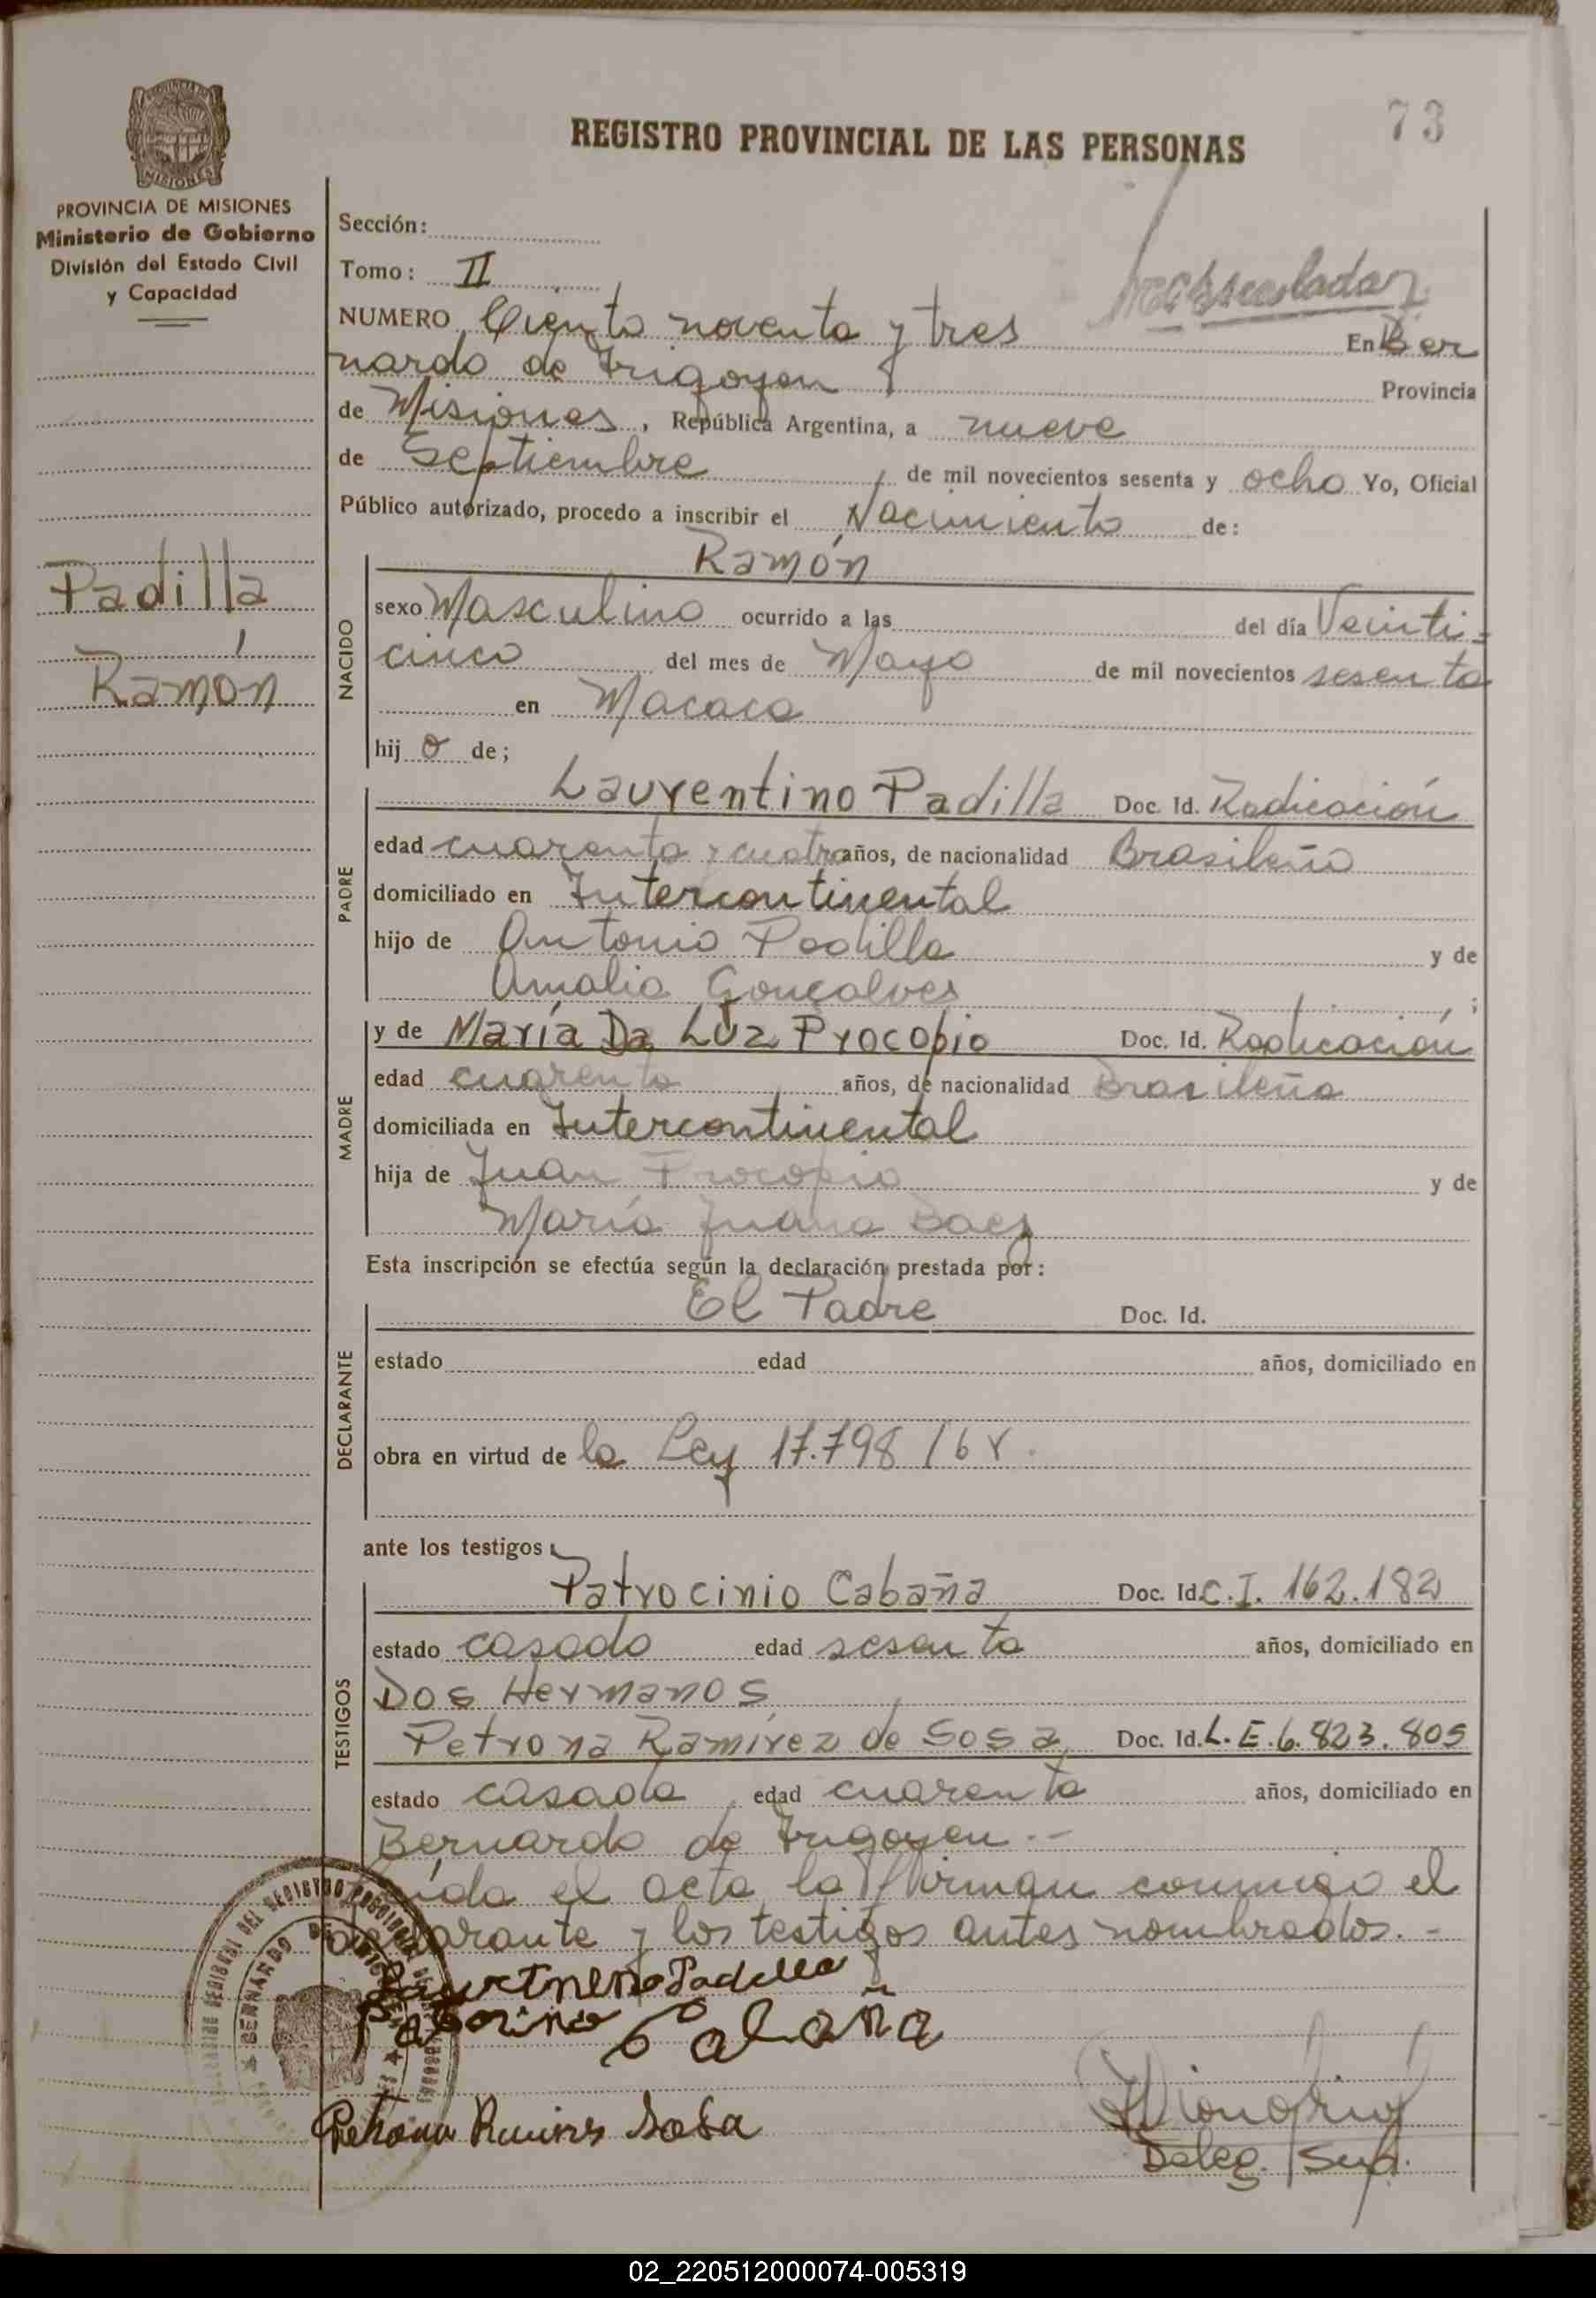 73
REGISTRO PROVINCIAL DE LAS PERSONAS
PROVINCIA DE MISIONES
Ministerio de Gobierno
División del Estado Civil
y Capacidad
Padilla
Ramón
Sección:
Tomo: II
NUMERO Ciento noventa y tres En Ber
nardo de Irigoyen Provincia
de Misiones, República Argentina, a nueve
de Septiembre, de mil novecientos sesenta y ocho Yo, Oficial
Público autorizado, procedo a inscribir el Nacimiento de:
NACIDO
Ramón
sexo Masculino ocurrido a las del día Veinti-
cinco del mes de Mayo de mil novecientos sesenta
en Macaca
hij o de;
PADRE
Laurentino Padilla Doc. Id. Radicación
edad cuarenta y cuatro años, de nacionalidad Brasileña
domiciliado en Intercontinental
hijo de Antonio Padilla y de
Amalia Gonçalves ;
MADRE
y de María Da Luz Procopio Doc. Id. Radicación
edad cuarenta años, de nacionalidad Brasileña
domiciliada en Intercontinental
hija de Juan Procopio y de
María Juana Baez
Esta inscripción se efectúa según la declaración prestada por:
DECLARANTE
El Padre Doc. Id.
estado edad años, domiciliado en
obra en virtud de la Ley 17.798/68.
ante los testigos:
TESTIGOS
Patrocinio Cabaña Doc. Id. C.I. 162.182
estado casado edad sesenta años, domiciliado en
Dos Hermanos
Petrona Ramírez de Sosa Doc. Id. L.E. 6.823.805
estado casada edad cuarenta años, domiciliado en
Bernardo de Irigoyen.-
el acta la firman conmigo el
y los testigos antes nombrados.-
Padilla
Cabaña
Sosa
Deleg. Sup.
02_220512000074-005319